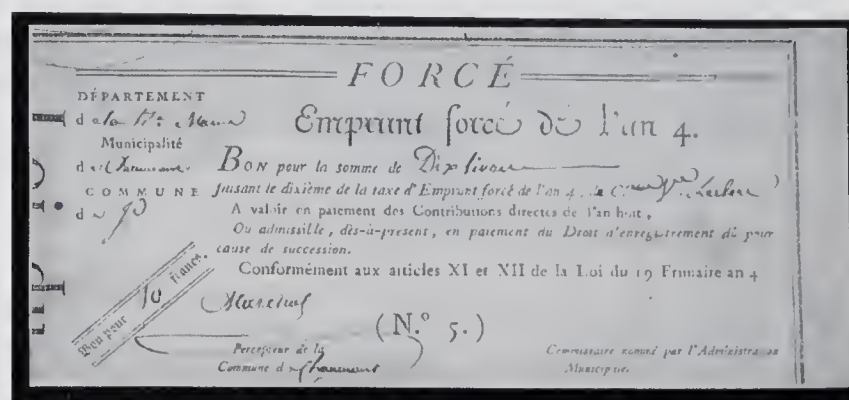 FORCÉ
DÉPARTEMENT
de la Hte Marne
Emprunt forcé de l'an 4.
Municipalité
d
BON pour la somme de Dix livres
COMMUNE
faisant le dixième de la taxe d'Emprunt forcé de l'an 4, Leclerc
d
A valoir en paiement des Contributions directes de l'an huit,
Ou admissible, dès-à-présent, en paiement du Droit d'enregistrement dû pour
cause de succession.
Bon pour 10 francs.
Conformément aux articles XI et XII de la Loi du 19 Frimaire an 4
Marechal
(N.° 5.)
Percepteur de la
Commune d Chaumont
Commissaire nommé par l'Administration
Municipale.